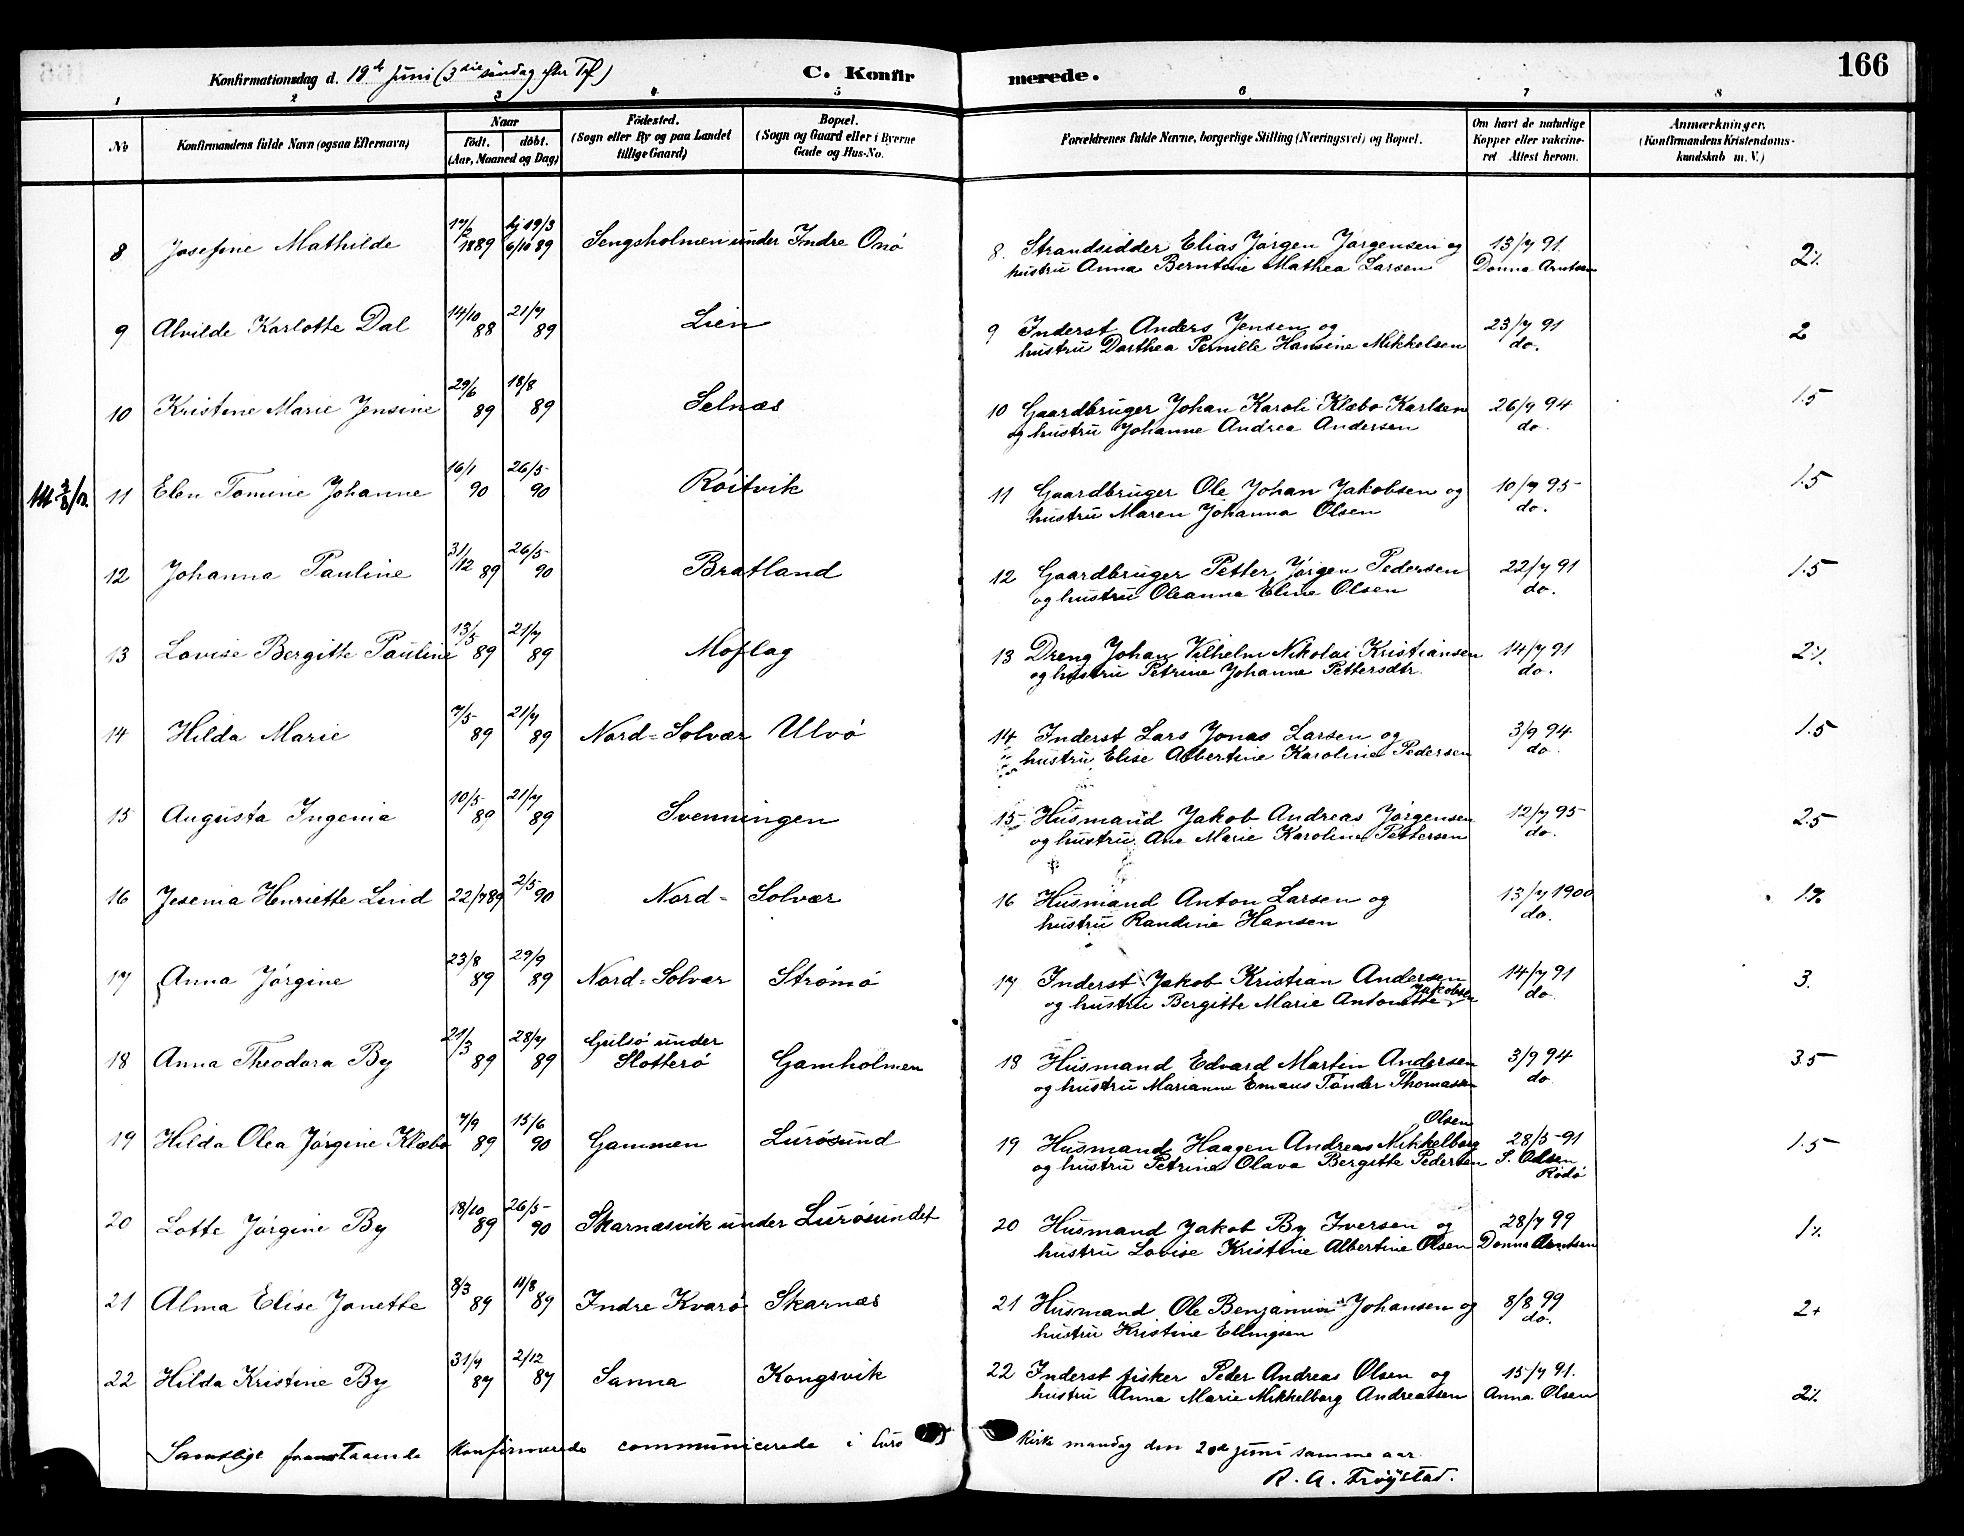 Konfirmationsdag d. 19de Juni (3die søndag efter Tref.)
C. Konfir merede.
166
1 2 3 4 5 6 7 8
No
Konfirmandens fulde Navn (ogsaa Efternavn)
Naar
født. døbt.
(Aar, Maaned og Dag)
Fødested.
(Sogn eller By og paa Landet
tillige Gaard)
Bopæl.
(Sogn og Gaard eller i Byerne
Gade og Hus-No.
Forældrenes fulde Navne, borgerlige Stilling (Næringsvei) og Bopæl.
Om havt de naturlige
Kopper eller vakcine-
ret Attest herom.
Anmærkninger.
(Konfirmandens Kristendoms-
kundskab m. V.)
8 Josefine Mathilde 1889 hj 19/3 6/10 89 Sengsholmen under Indre Onø 8. Strandsidder Elias Jørgen Jørgensen og 13/7 91.
hustru Anna Berntine Mathea Larsen Donna Arntsen
9 Alvilde Karlotte Dal 14/10 88 21/7 89 Lien 9 Inderst Anders Jensen og 23/7 91 2
hustru Dorthea Pernille Hansine Mikkelsen do.
10 Kristine Marie Jensine 29/6 89 18/8 89 Selnæs 10 Gaardbruger Johan Karoli Klæbo Karlsen 26/9 94 1.5
og hustru Johanne Andrea Andersen do.
11 Elen Tomine Johanne 16/1 90 26/5 90 Røitvik 11 Gaardbruger Ole Johan Jakobsen og 10/7 95 1.5
hustru Maren Johanna Olsen do.
12 Johanna Pauline 31/12 89 26/5 90 Bratland 12 Gaardbruger Petter Jørgen Pedersen 22/7 91 1.5
og hustru Oleanna Eline Olsen do.
13 Lovise Bergitte Pauline 13/5 89 21/7 89 Moflag 13 Dreng Johan Vilhelm Nikolai Kristiansen 14/7 91
og hustru Petrine Johanne Pettersdtr. do.
14 Hilda Marie 7/5 89 21/7 89 Nord-Solvær Ulvø 14 Inderst Lars Jonas Larsen og 3/9 94 1.5
hustru Elise Albertine Karoline Pedersen do.
15 Augusta Ingenia 10/5 89 21/7 89 Svenningen 15 Husmand Jakob Andreas Jørgensen 12/7 95 2.5
og hustru Ane Marie Karoline Pettersen do.
16 Jesenia Henriette Lind 22/7 89 2/5 90 Nord-Solvær 16 Husmand Anton Larsen og 13/7 1900
hustru Randine Hansen do.
17 Anna Jørgine 23/8 89 29/9 89 Nord-Solvær Strømø 17 Inderst Jakob Kristian Andersen 14/7 91 3.
og hustru Bergitte Marie Antonette Jakobsen do
18 Anna Theodora By 21/3 89 28/7 89 Gulsø under Slotterø Gamholmen 18 Husmand Edvard Martin Andersen 3/9 94 3.5
og hustru Marianne Emaus Tønder Thomasen do.
19 Hilda Olea Jørgine Klæbo 7/9 89 15/6 90 Gammen Lurøsund 19 Husmand Haagen Andreas Mikkelborg Olsen 28/5-91 1.5
og hustru Petrine Olava Bergitte Pedersen S. Olsen Rødø
20 Lotte Jørgine By 18/10 89 26/5 90 Skarnæsvik under Lurøsundet 20 Husmand Jakob By Iversen og 28/7 99
hustru Lovise Kristine Albertine Olsen Donna Arntsen
21 Alma Elise Jonette 8/3 89 11/8 89 Indre Kvarø Skarnæs 21 Husmand Ole Benjamin Johansen og 8/8 99 2+
hustru Kristine Ellingsen do.
22 Hilda Kristine By 31/7 87 2/12 87 Sanna Kongsvik 22 Inderst fisker Peder Andreas Olsen og 15/7 91.
hustru Anna Marie Mikkelborg Andreasen Anna Olsen
Samtlige fremstaaende konfirmerede communicerede i Lurø kirke mandag den 20de juni samme aar.
R. A. Frøystad.